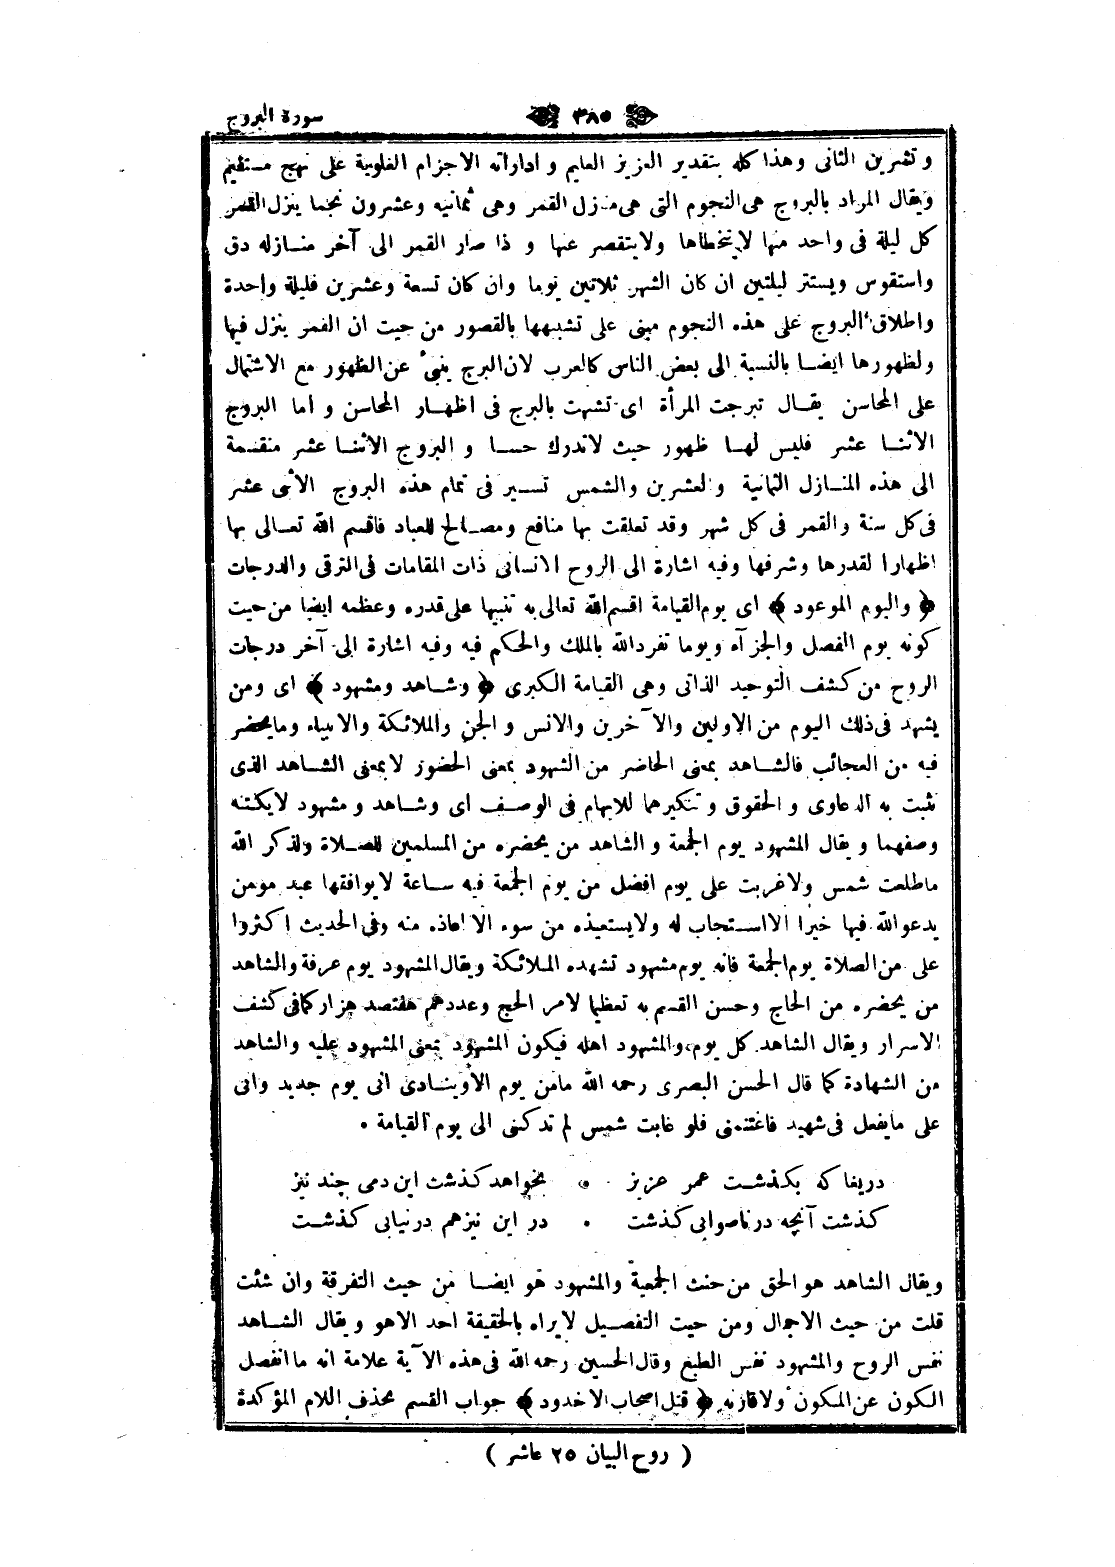 سورة البروج
٣٨٥
وتشرين الثانى وهذا كله بتقدير العزيز العليم و اداراته الاجزام الفلوية على نهج مستقيم
ويقال المراد بالبروج هى النجوم التى هى منازل القمر وهى ثمانيه وعشرون نجما ينزل القمر
كل ليلة فى واحد منها لايتخطاها ولايتقصر عنها و ذا صار القمر الى آخر منازله دق
واستقوس ويستتر ليلتين ان كان الشهر ثلاثين يوما وان كان تسعة وعشرين فليلة واحدة
واطلاق البروج على هذه النجوم مبنى على تشبيهها بالقصور من حيث ان القمر ينزل فيها
ولظهورها ايضا بالنسبة الى بعض الناس كالعرب لان البرج ينبئ عن الظهور مع الاشتمال
على المحاسن يقال تبرجت المرأة اى تشبهت بالبرج فى اظهار المحاسن و اما البروج
الاثنا عشر فليس لها ظهور حيث لاتدرك حسا و البروج الاثنا عشر منقسمة
الى هذه المنازل الثمانية والعشرين والشمس تسير فى تمام هذه البروج الاثنى عشر
فى كل سنة والقمر فى كل شهر وقد تعلقت بها منافع ومصالح للعباد فاقسم الله تعالى بها
اظهارا لقدرها وشرفها وفيه اشارة الى الروح الانسانى ذات المقامات فى الترقى والدرجات
﴿ واليوم الموعود ﴾ اى يوم القيامة اقسم الله تعالى به تنبيها على قدره وعظمه ايضا من حيث
كونه يوم الفصل والجزآء ويوما تفرد الله بالملك والحكم فيه وفيه اشارة الى آخر درجات
الروح من كشف التوحيد الذاتى وهى القيامة الكبرى ﴿ وشاهد ومشهود ﴾ اى ومن
يشهد فى ذلك اليوم من الاولين والآخرين والانس و الجن والملائكة والانبياء ومايحضر
فيه من العجائب فالشاهد بمعنى الحاضر من الشهود بمعنى الحضور لابمعنى الشاهد الذى
تثبت به الدعاوى و الحقوق و تنكيرهما للابهام فى الوصف اى وشاهد و مشهود لايكتنه
وصفهما و يقال المشهود يوم الجمعة و الشاهد من يحضره من المسلمين للصلاة ولذكر الله
ماطلعت شمس ولاغربت على يوم افضل من يوم الجمعة فيه ساعة لايوافقها عبد مؤمن
يدعو الله فيها خيرا الااستجاب له ولايستعيذه من سوء الا اعاذه منه وفى الحديث اكثروا
على من الصلاة يوم الجمعة فانه يوم مشهود تشهده الملائكة ويقال المشهود يوم عرفة والشاهد
من يحضره من الحاج وحسن القسم به تعظيما لامر الحج وعددهم هفتصد هزار كما فى كشف
الاسرار ويقال الشاهد كل يوم والمشهود اهله فيكون المشهود بمعنى المشهود عليه والشاهد
من الشهادة كما قال الحسن البصرى رحمه الله مامن يوم الاوينادى انى يوم جديد وانى
على مايفعل فى شهيد فاغتنمنى فلو غابت شمس لم تدركنى الى يوم القيامة •
دريغا كه بكذشت عمر عزيز • بخواهد كذشت اين دمى چند نيز
كذشت آنچه در ناصوابى كذشت • در اين نيزهم درنيابى كذشت
ويقال الشاهد هو الحق من حيث الجمعية والمشهود هو ايضا من حيث التفرقة وان شئت
قلت من حيث الاجمال ومن حيث التفصيل لايراه بالحقيقة احد الاهو ويقال الشاهد
نفس الروح والمشهود نفس الطبع وقال الحسين رحمه الله فى هذه الآية علامة انه ماانفصل
الكون عن المكون ولاقارنه ﴿ قتل اصحاب الاخدود ﴾ جواب القسم بحذف اللام المؤكدة
( روح البيان ٢٥ عاشر )